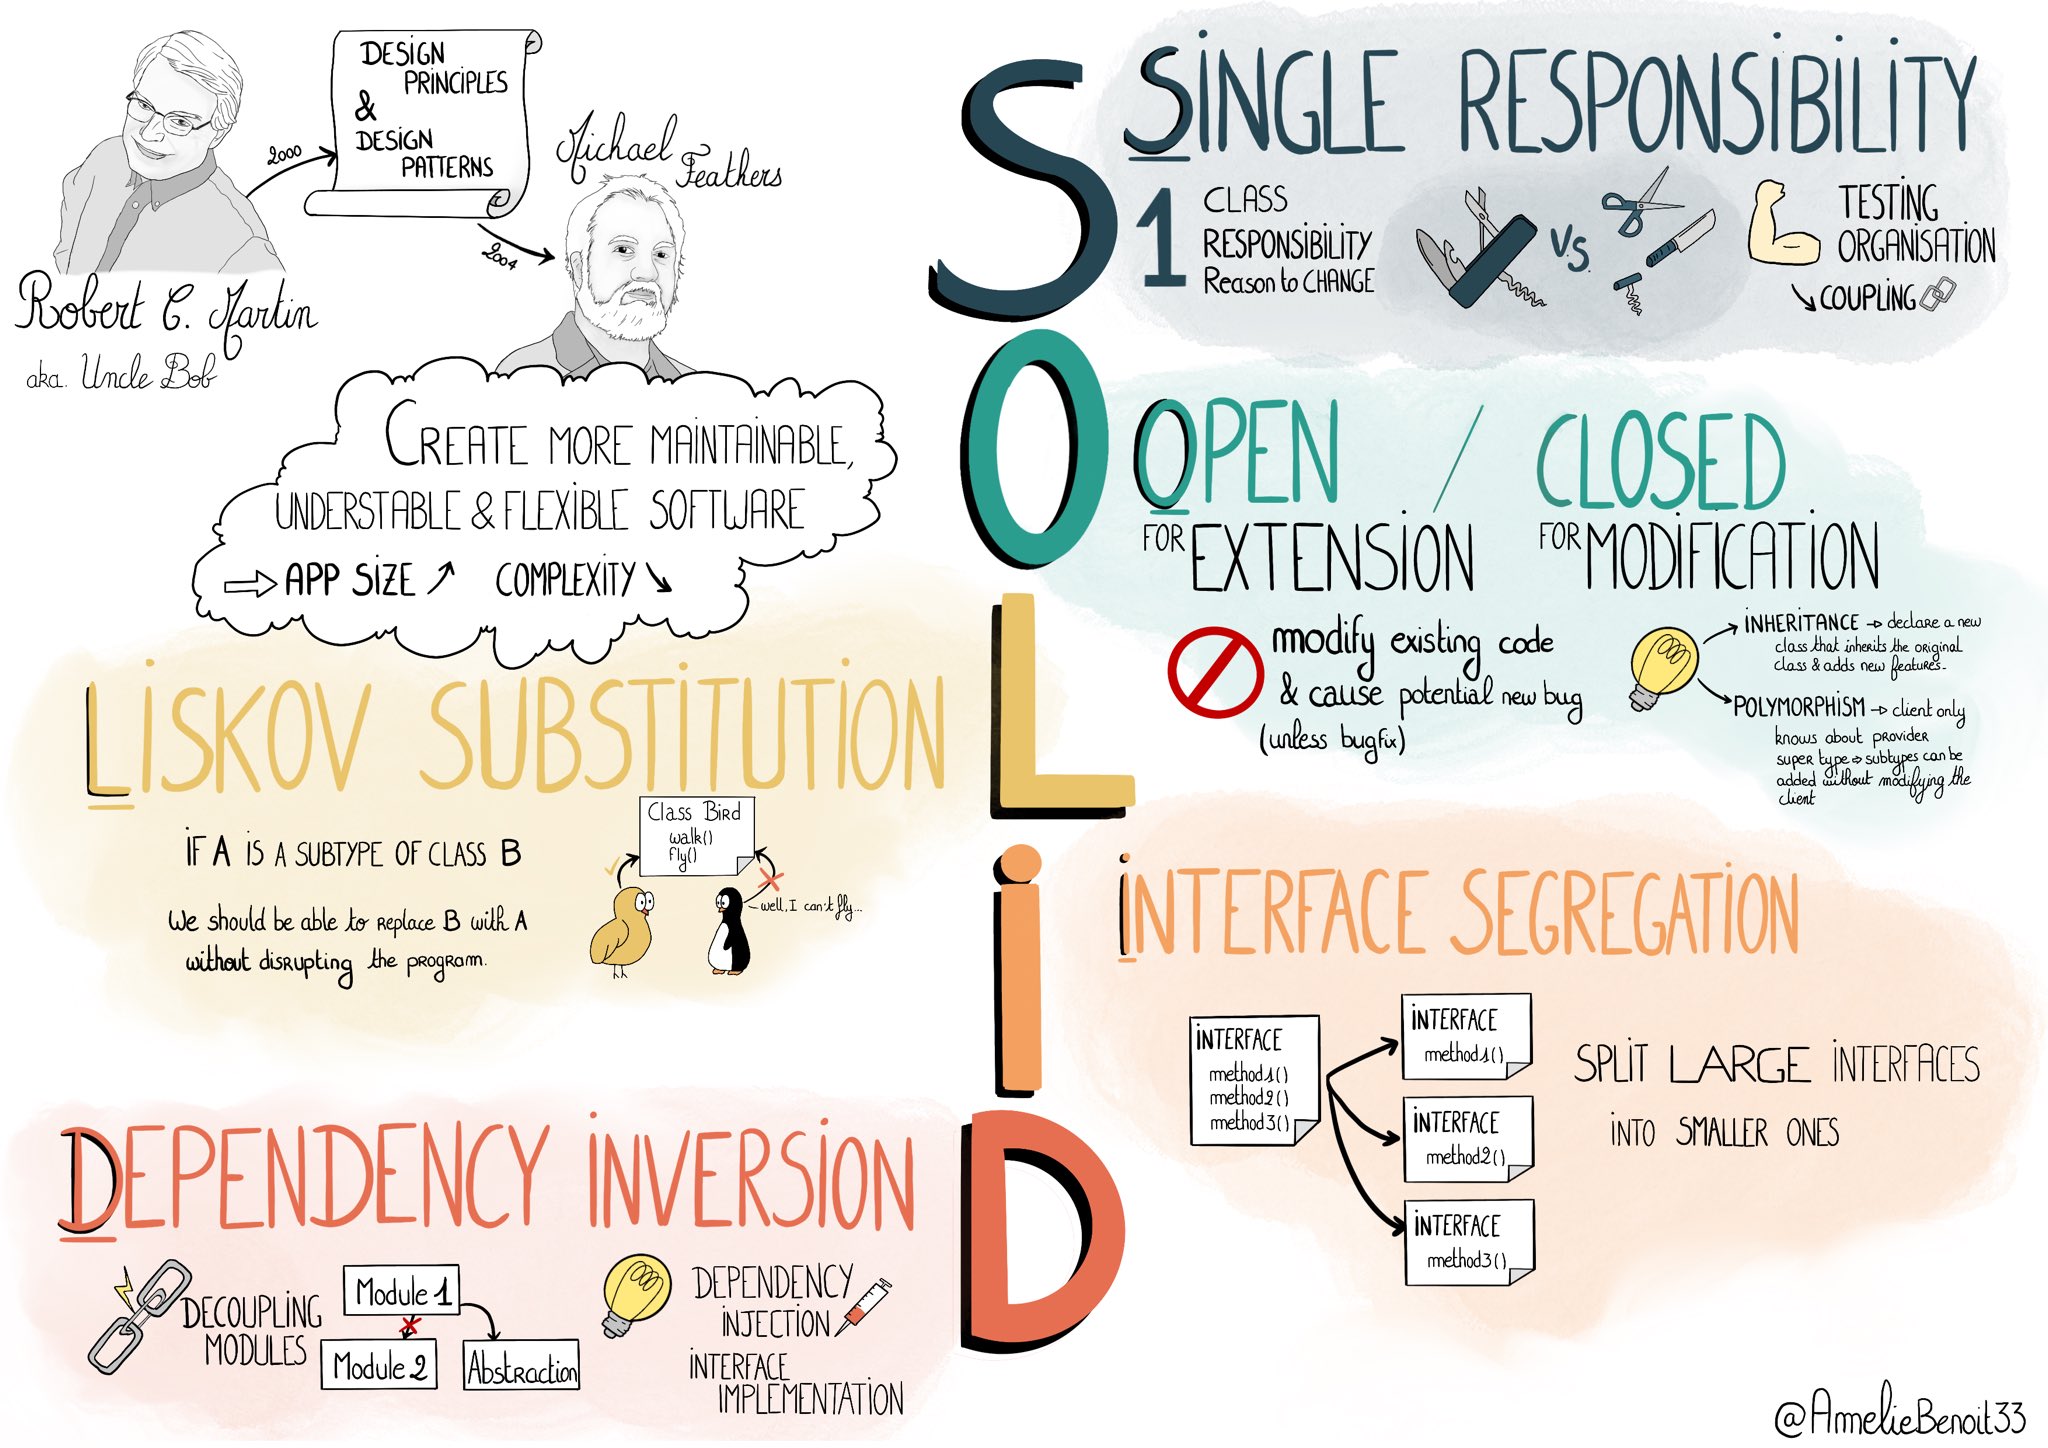 DESIGN
PRINCIPLES
&
DESIGN
PATTERNS
2000
Robert C. Martin
aka. Uncle Bob
Michael
Feathers
2004
CREATE MORE MAINTAINABLE,
UNDERSTABLE & FLEXIBLE SOFTWARE
APP SIZE COMPLEXITY
S
O
L
I
D
SINGLE RESPONSIBILITY
1
CLASS
RESPONSIBILITY
Reason to CHANGE
V.S.
TESTING
ORGANISATION
COUPLING
OPEN / CLOSED
FOR EXTENSION
FOR MODIFICATION
modify existing code
& cause potential new bug
(unless bugfix)
INHERITANCE → declare a new
class that inherits the original
class & adds new features.
POLYMORPHISM → client only
knows about provider
super type → subtypes can be
added without modifying the
client
LISKOV SUBSTITUTION
IF A IS A SUBTYPE OF CLASS B
We should be able to replace B with A
without disrupting the program.
Class Bird
walk()
fly()
well, I can't fly...
INTERFACE SEGREGATION
INTERFACE
method1()
method2()
method3()
INTERFACE
method1()
INTERFACE
method2()
INTERFACE
method3()
SPLIT LARGE INTERFACES
INTO SMALLER ONES
DEPENDENCY INVERSION
DECOUPLING
MODULES
Module 1
Module 2
Abstraction
DEPENDENCY
INJECTION
INTERFACE
IMPLEMENTATION
@AmelieBenoit33